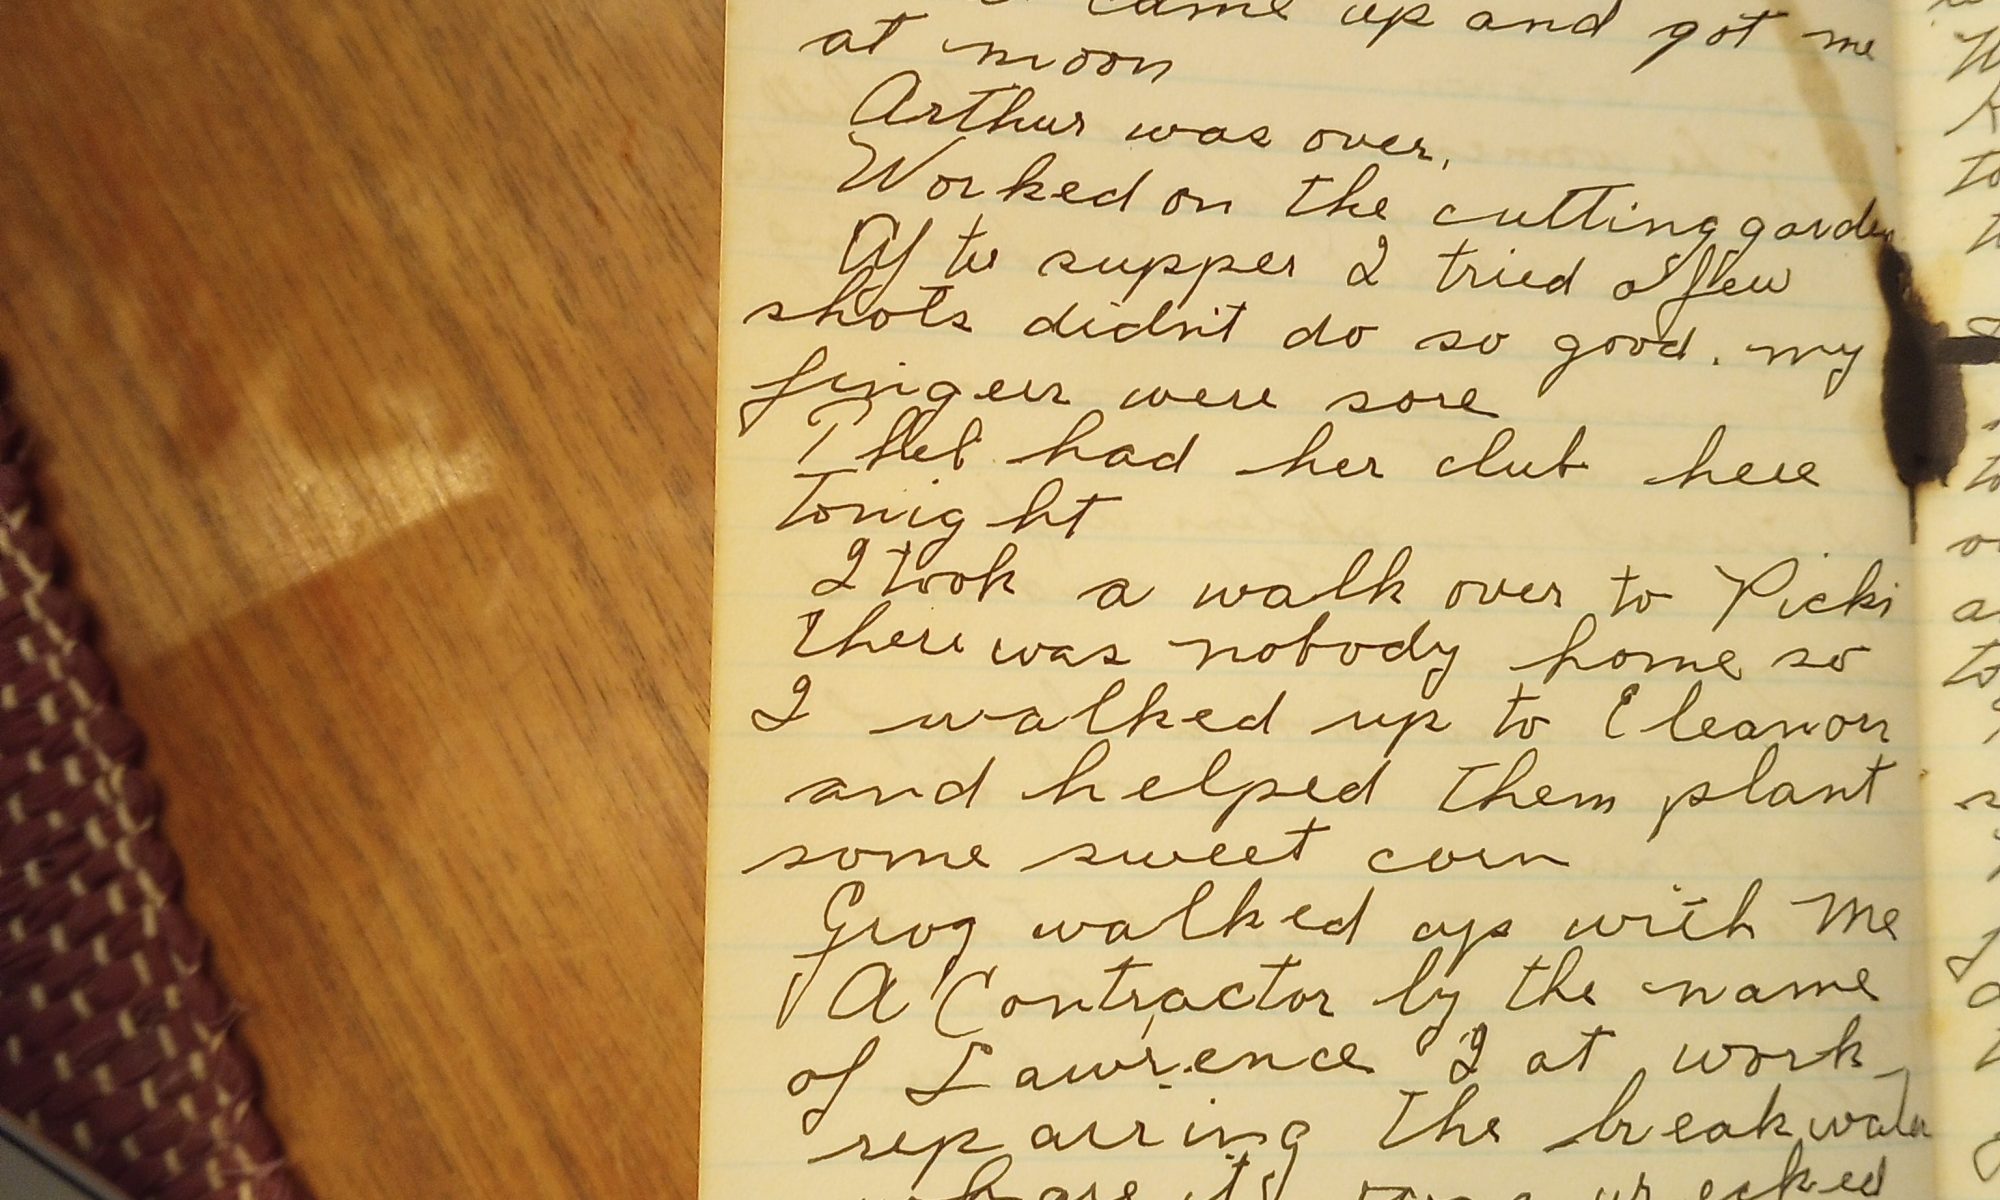 came up and got me
at noon
Arthur was over,
Worked on the cutting garden
After supper I tried a few
shots didn't do so good. my
fingers were sore
had her club here
tonight
I took a walk over to Picks
there was nobody home so
I walked up to Eleanors
and helped them plant
some sweet corn
Grog walked up with me
A Contractor by the name
of Lawrence I at work
reparring the breakwater
where its